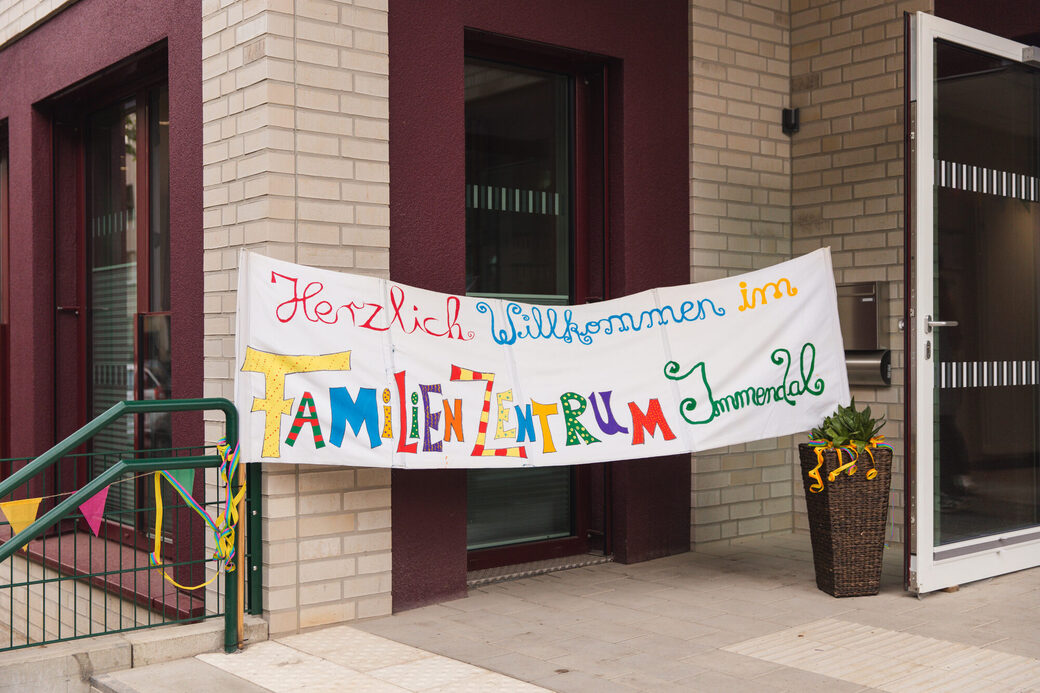 Herzlich Willkommen im
FAMiLiEN ZENTRUM Immendal